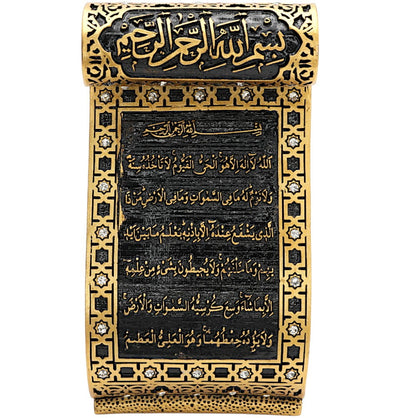 بِسْمِ اللهِ الرَّحْمٰنِ الرَّحِيمِ
بِسْمِ اللهِ الرَّحْمٰنِ الرَّحِيمِ
اَللهُ لَا اِلٰهَ اِلَّا هُوَ الْحَيُّ الْقَيُّومُ لَا تَأْخُذُهُ سِنَةٌ
وَلَا نَوْمٌ لَهُ مَا فِي السَّمٰوَاتِ وَمَا فِي الْاَرْضِ مَنْ ذَا
الَّذِي يَشْفَعُ عِنْدَهُ اِلَّا بِاِذْنِهِ يَعْلَمُ مَا بَيْنَ اَيْدِ
يهِمْ وَمَا خَلْفَهُمْ وَلَا يُحِيطُونَ بِشَيْءٍ مِنْ عِلْمِهِ
اِلَّا بِمَا شَاءَ وَسِعَ كُرْسِيُّهُ السَّمٰوَاتِ وَالْاَرْضَ
وَلَا يَؤُدُهُ حِفْظُهُمَا وَهُوَ الْعَلِيُّ الْعَظِيمُ